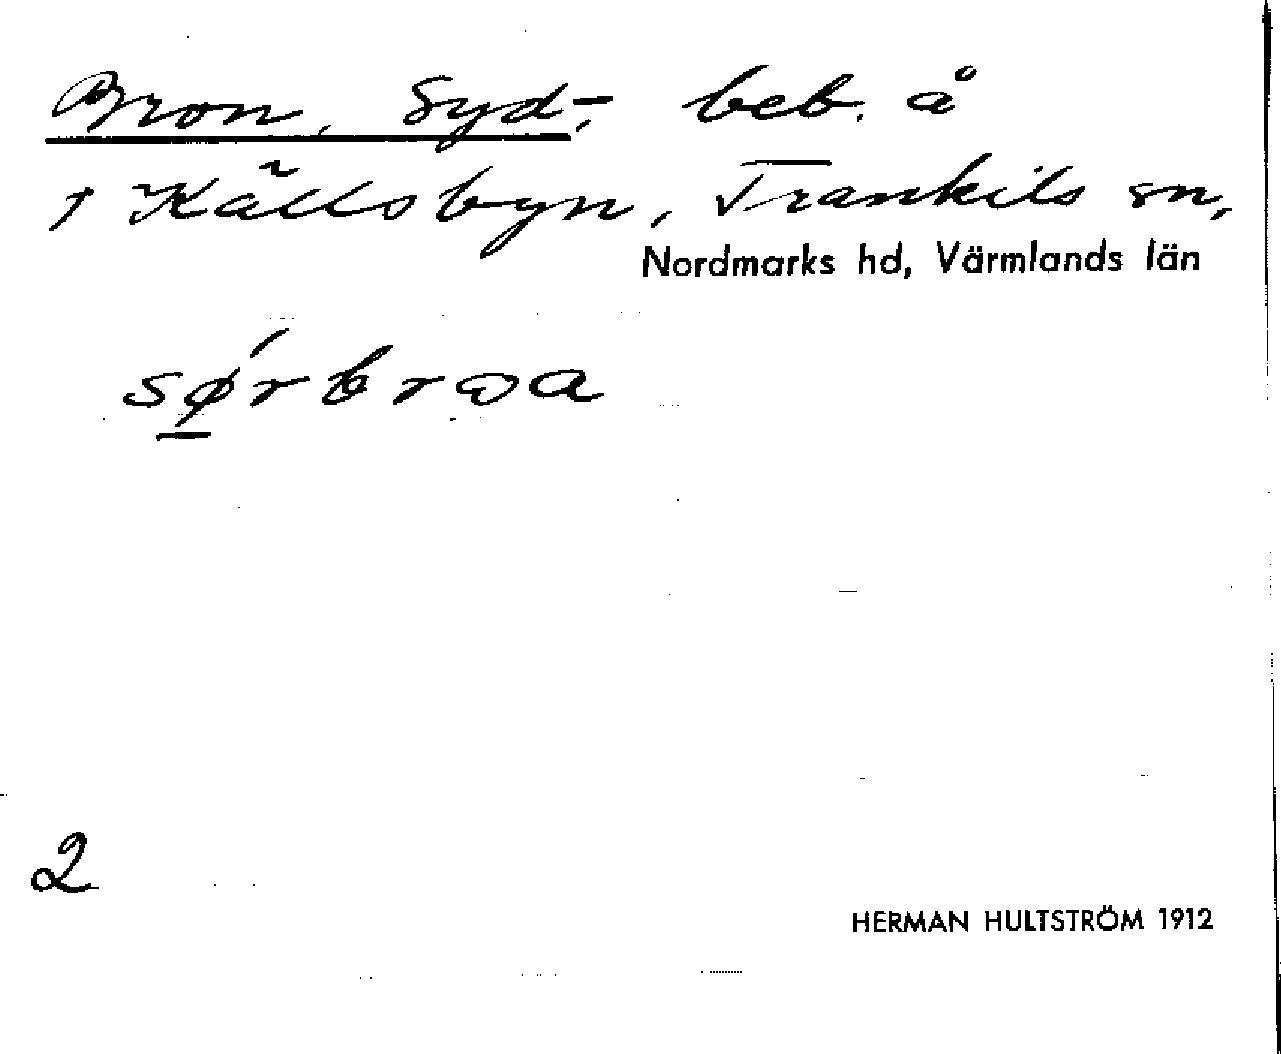 Bron, Syd-, beb. å
1 Källsbyn, Trankils sn,
Nordmarks hd, Värmlands län
sǿ̲rbrωa
2
HERMAN HULTSTRÖM 1912